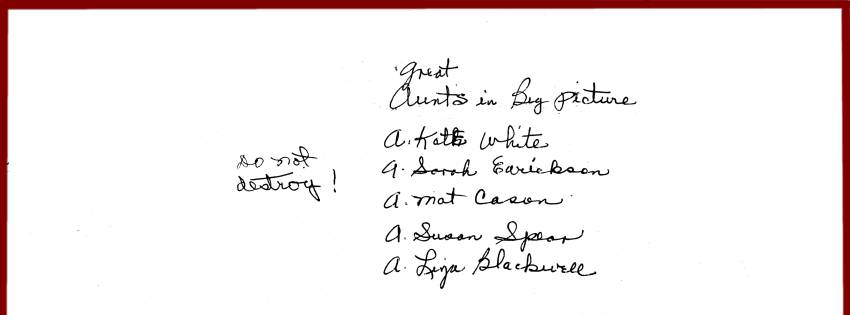 Great
Aunts in Big Picture
A. Kate White
A. Sarah Earickson
A. Mat Cason
A. Susan Spear
A. Liza Blackwell
Do not
destroy!